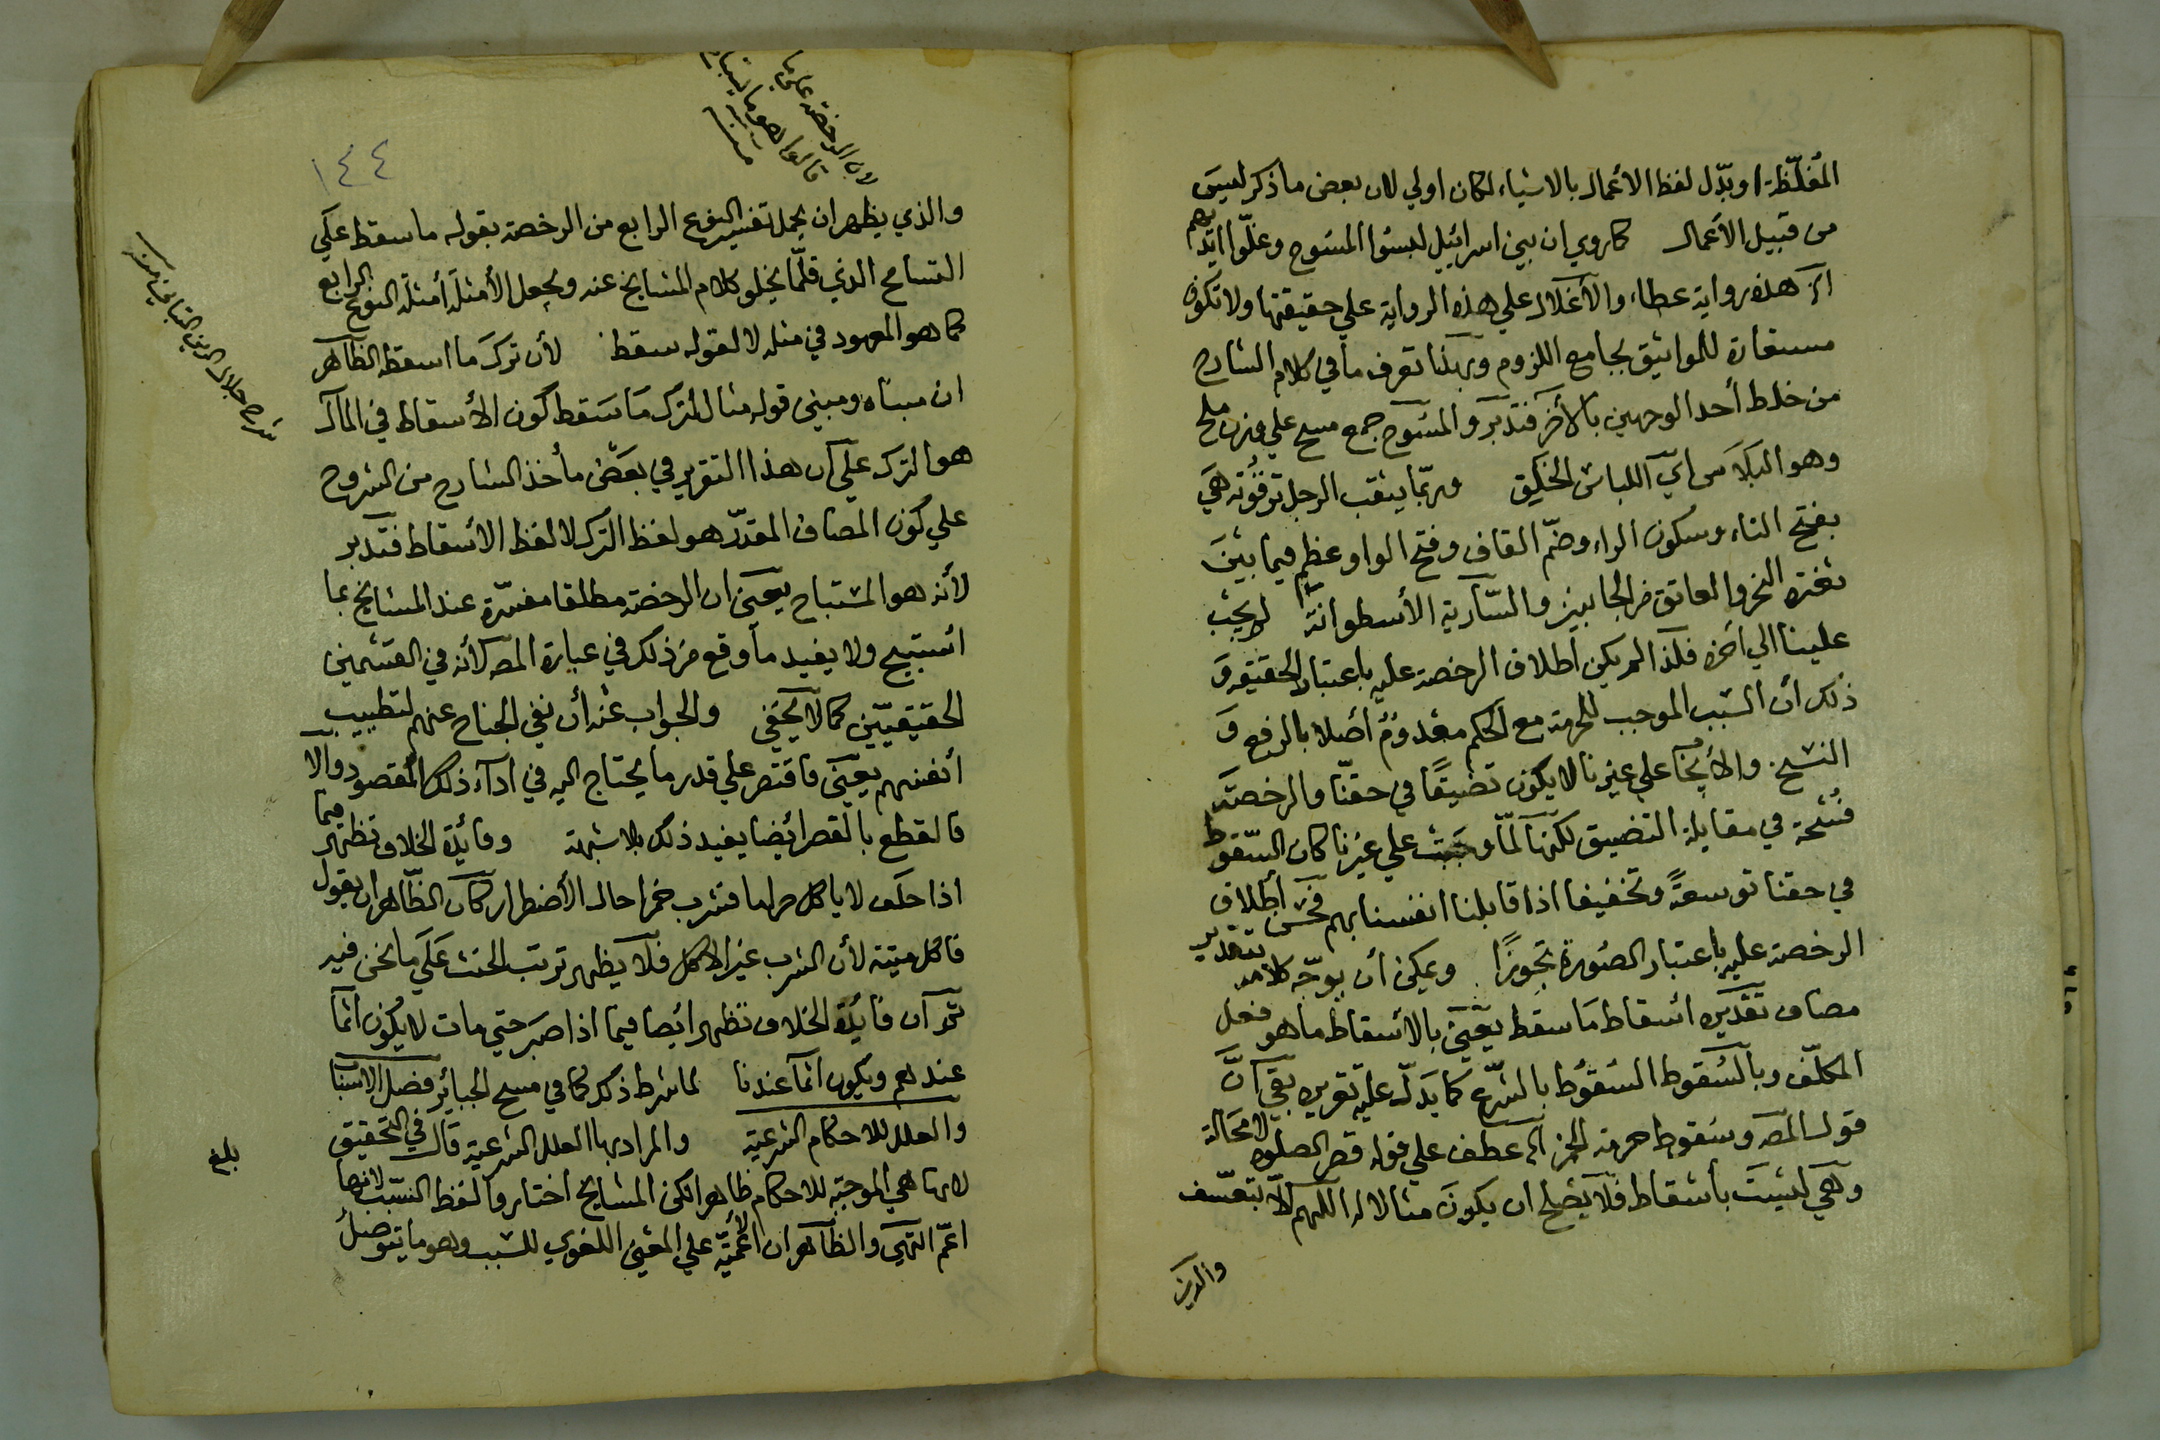 المُغلّظة او بدّل لفظ الأعمال بالاشياء لكان اولي لان بعض ما ذكر ليس
من قبيل الأعمال كما روي ان بني اسرائيل لبسوا المسوح وغلّوا ايديهم
الخ هذه رواية عطاء والأغلال علي هذه الرواية علي حقيقتها ولا تكون
مستعارة للمواثيق بجامع اللزوم وبهذا تعرف ما في كلام الشارح
من خلط أحد الوجهين بالآخر فتدبّر والمسوح جمع مسح علي وزن ملح
وهو البلاس اي اللباس الخَلِق وربّما يثقب الرجل ترقُوته هي
بفتح التاء وسكون الراء وضمّ القاف وفتح الواو عظم فيما بين
ثغرة النحر والعاتق من الجانبين والسّارية الأسطوانة لم يجب
علينا الي اخره فلذا لم يكن اطلاق الرخصة عليه باعتبار الحقيقة و
ذلك أن السبب الموجب للحرمة مع الحكم معدومٌ أصلا بالرفع و
النسخ والأيجاب علي غيرنا لا يكون تضييقًا في حقنّا والرخصة
فُسْحة في مقابلة التضييق لكنّها لمّا وجبت علي غيرنا كان السّقوط
في حقنا توسعةً وتخفيفا اذا قابلنا انفسنا بهم فحسن أطلاق
الرخصة عليه باعتبار الصّورة تجوزًا ويمكن أن يوجّه كلامه بتقدير
مضاف تقديره اسقاط ما سقط يعني بالأسقاط ما هو فعل
المكلّف وبالسُقوط السُقوط بالشّرع كما يدلّ عليه تقريره بقي انّ
قول المصه وسقوط حرمة الخمر الخ عطف علي قوله قصر الصلوة لا محالة
وهي ليست بأسقاط فلا يصلح ان يكون مثالا له اللهم الّا بتعسّف
والذي
لان الرخصة علي ما
قالوا هو ما يستباح
منه
١٤٤
والذي يظهر ان يحمل تفسير النوع الرابع من الرخصة بقوله ما سقط علي
التسامح الذي قلّما يخلو كلام المشايخ عنه ويجعل الأمثلة أمثلة النوع الرابع
كما هو المعهود في مثله لا لقوله سقط لأن ترك ما اسقط الظاهر
ان مبناه ومبني قوله مثال لترك ما سقط كون الأسقاط في المآل
هو الترك علي ان هذا التقرير في بعض مأخذ الشارح من الشروح
علي كون المضاف المقدّر هو لفظ الترك لا لفظ الاسقاط فتدبر
لأنه هو المستباح يعني ان الرخصة مطلقا مفسّرة عند المشايخ بما
استبيح ولا يفيد ما وقع من ذلك في عبارة المصه لأنه في القسمين
الحقيقيّين كما لا يخفي والجواب عنه أن نفي الجناح عنهم لتطييب
أنفسهم يعني فاقتصر علي قدر ما يحتاج اليه في أداء ذلك المقصود والا
فالقطع بالقصر ايضا يفيد ذلك بلا شبهة وفائدة الخلاف تظهر فيما
اذا حلف لا ياكل حراما فشرب خمرا حال الأضطرار كان الظاهر ان يقول
فاكل ميتة لأن الشرب غير الاكل فلا يظهر ترتب الحنث علي ما نحن فيه
ثم ان فائدة الخلاف تظهر ايضا فيما اذا صبر حتي مات لا يكون اثما
عندهم ويكون اثما عندنا لما شرط ذكر كما في مسح الجبائر فصل الاسباب
والعلل للاحكام الشرعية والمراد بها العلل الشرعية قال في التحقيق
لانها هي الموجبة للاحكام ظاهرا لكن المشايخ اختاروا لفظ السّبب لانها
اعمّ انتهي والظاهر ان الاعميّة علي المعني اللغوي للسبب وهو ما يتوصل
شرح جلال الدين التباني منه
بلغ